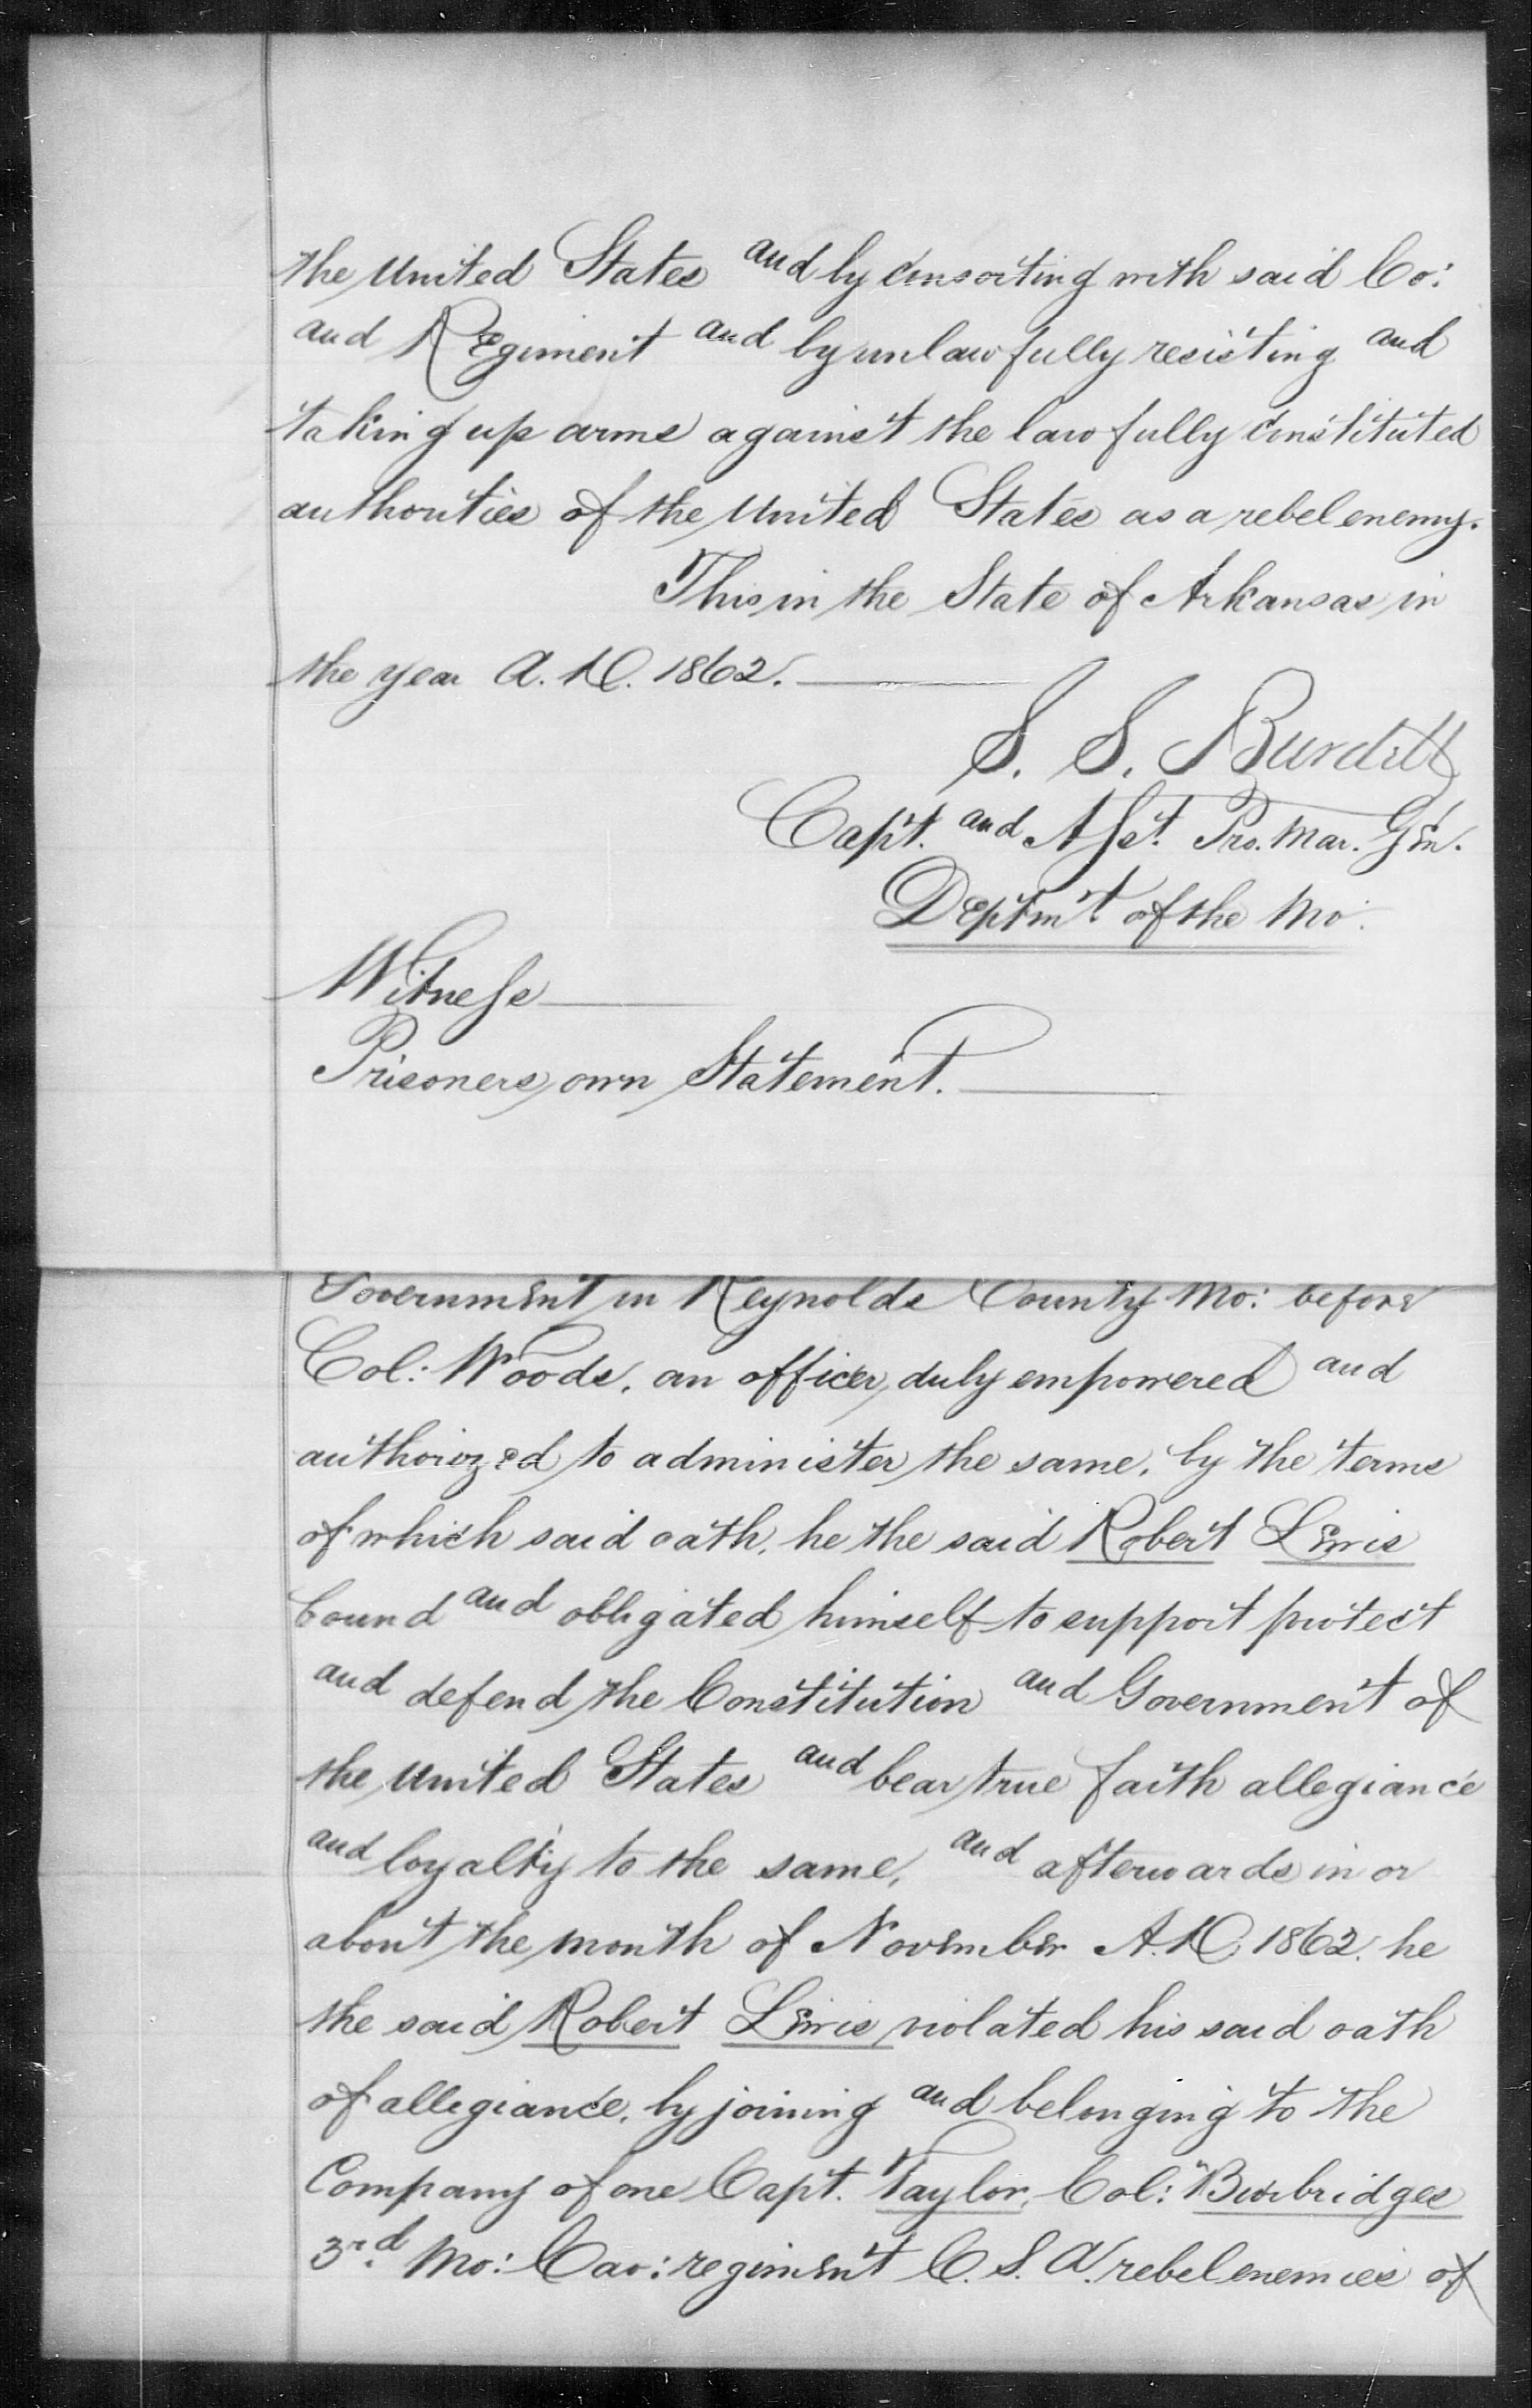 the United States and by consorting with said Co:
and Regiment and by unlawfully resisting and
taking up arms against the lawfully constituted
authorities of the United States as a rebel enemy.
This in the State of Arkansas in
the year A.D. 1862.
S. S. Burdett
Capt. and Asst. Pro. Mar. Gen.
Deptm't of the Mo.
Witness
Prisoners own Statement.
Government in Reynolds County Mo: before
Col: Woods, an officer, duly empowered and
authorized to administer the same, by the terms
of which said oath, he the said Robert Lewis
bound and obligated himself to support protect
and defend the Constitution and Government of
the United States and bear true faith allegiance
and loyalty to the same, and afterwards in or
about the month of November A.D. 1862. he
the said Robert Lewis violated his said oath
of allegiance, by joining and belonging to the
Company of one Capt. Taylor, Col: Burbridges
3rd Mo: Cav: regiment C. S. A. rebel enemies of